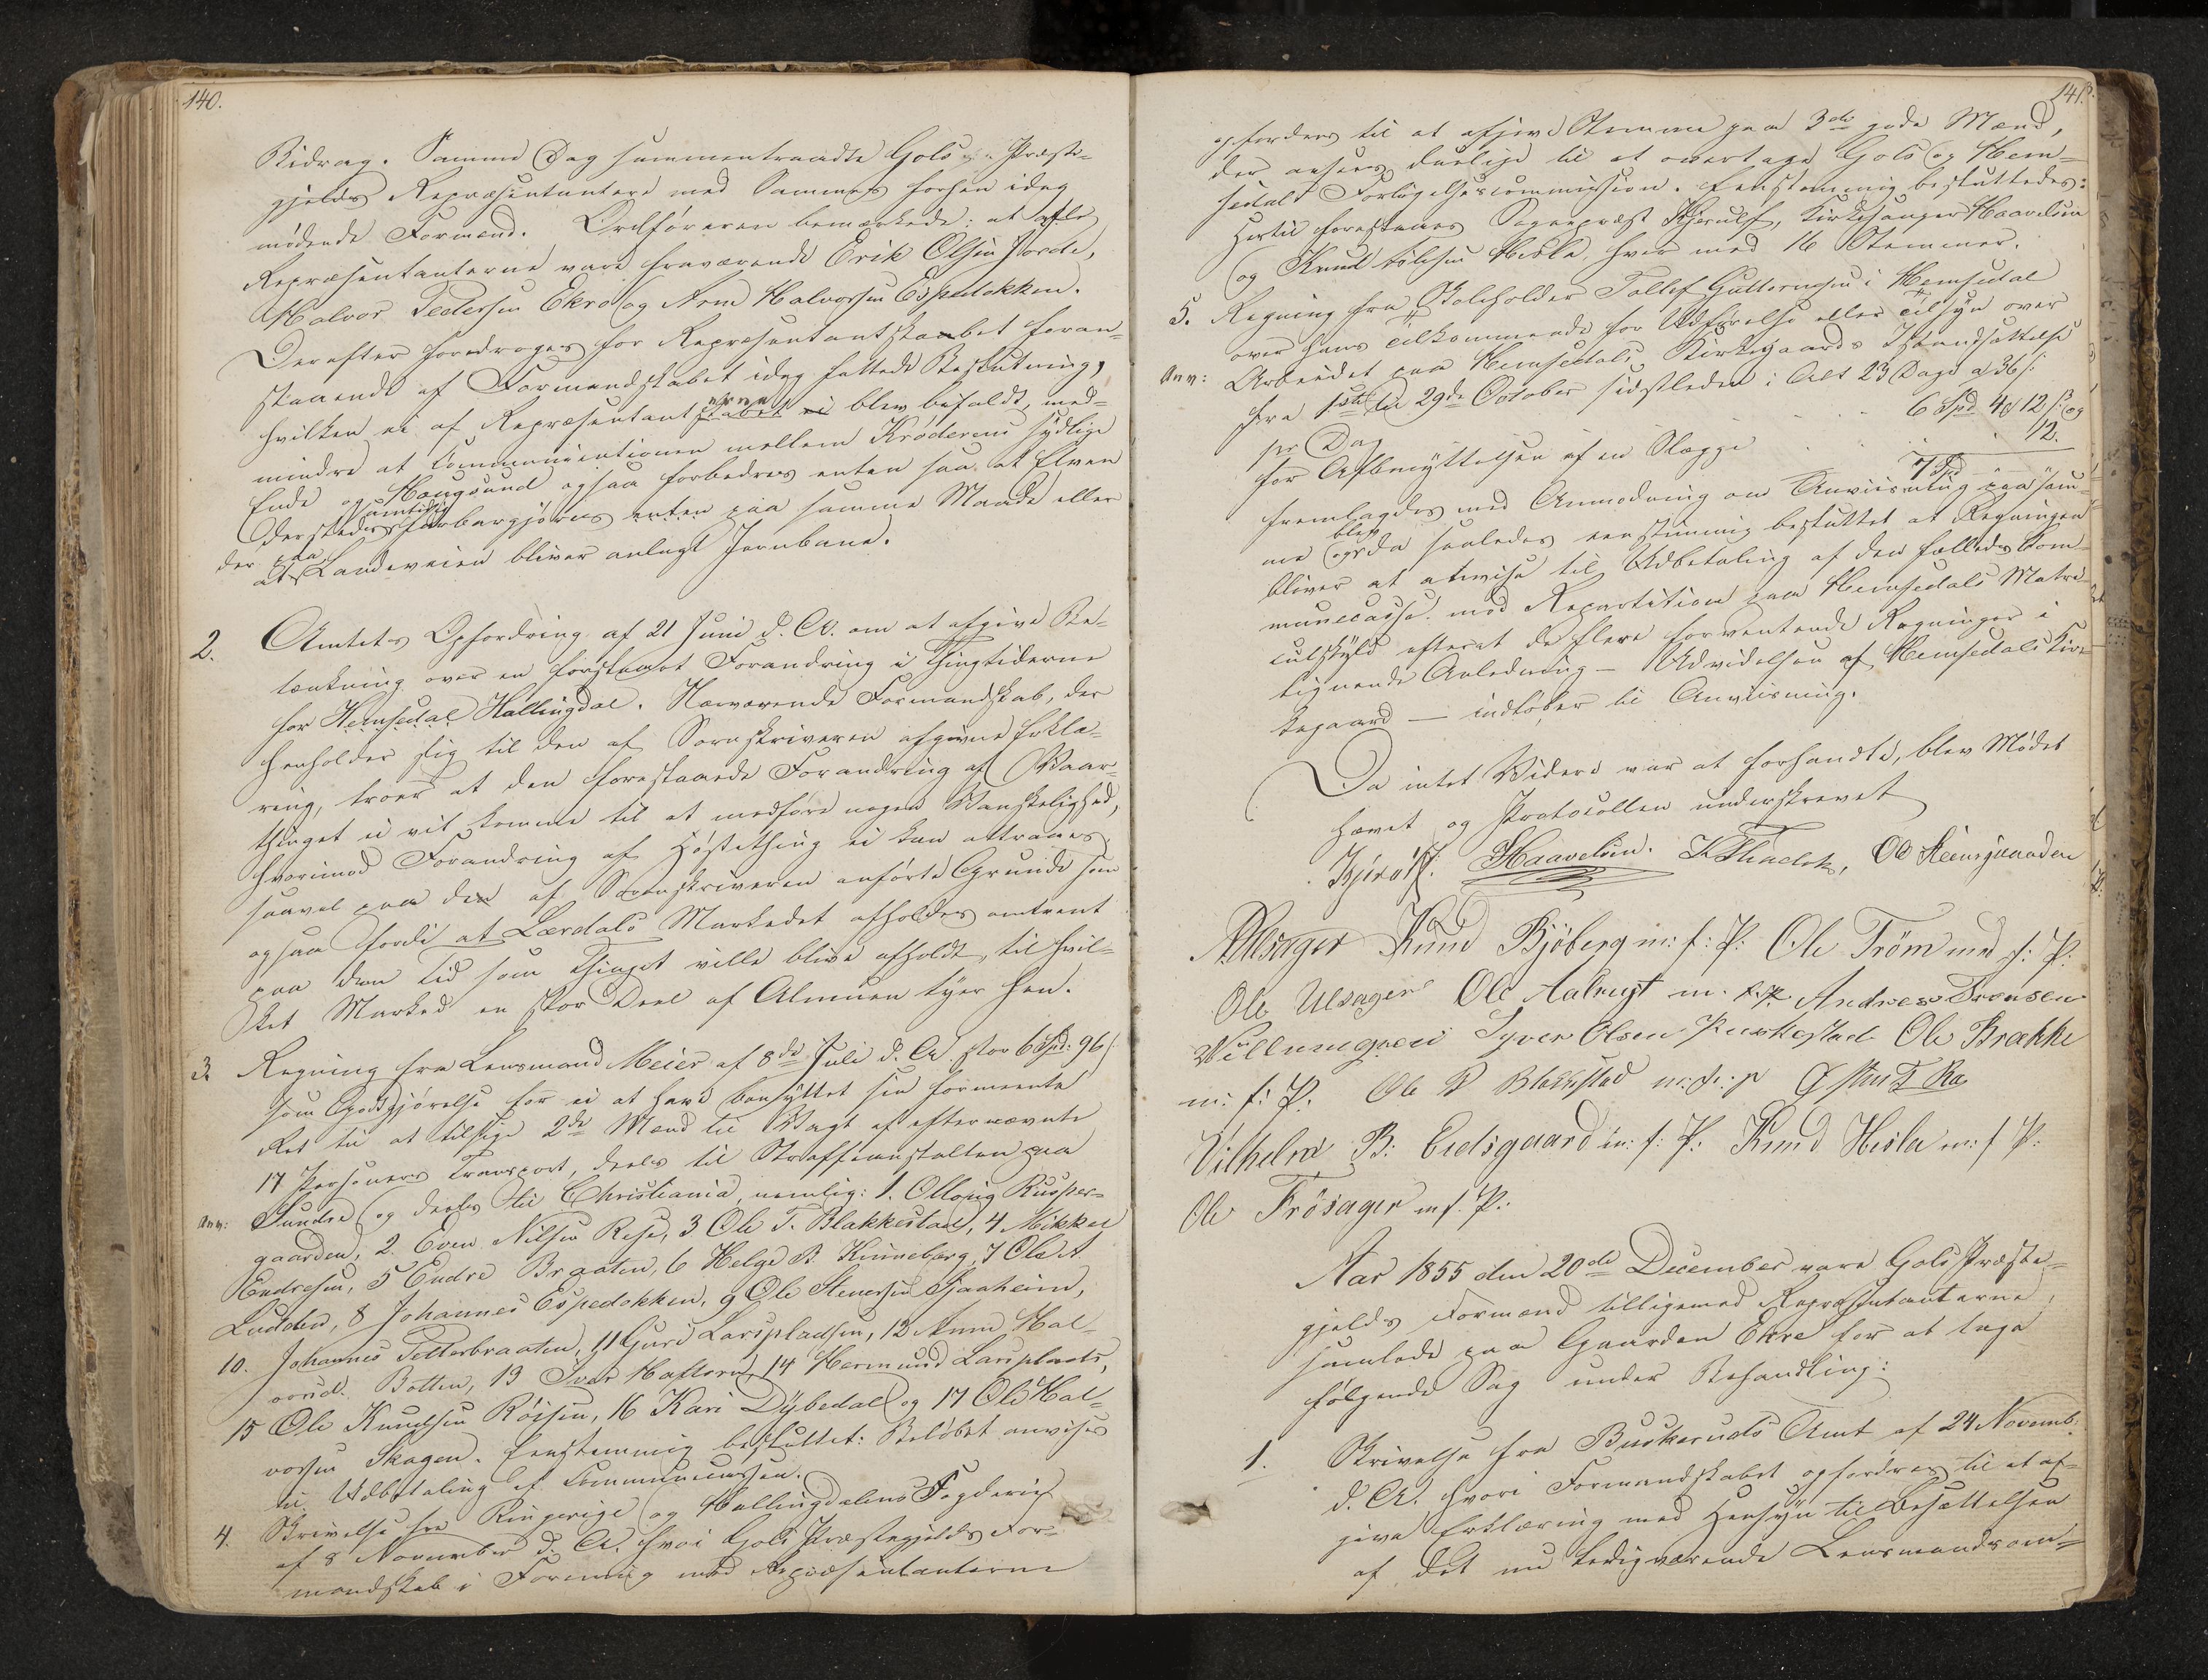 140.
Bidrag. Samme Dag sammentraadte Gols Præste-
gjelds Repræsentantere med Sammes forhen idag
mødende Formænd. Ordføreren bemærkede: at af de
Repræsentanterne vare fraværende Erik Olsen Jorde,
Halvor Pedersen Ekro og Arne Halvorsen Espedokken.
Derefter foredroges for Repræsentantskabet foran-
staaende af Formandskabet idag fattede Beslutning,
hvilken ei af Repræsentanterne blev bifaldt, med-
mindre at Communicationen mellem Krøderens sydlige
Ende og Haugsund ogsaa forbedres enten saa at Elven
dersteds samtidig farbargjøres enten paa samme Maade eller
der paa Landeveien bliver anlagt Jernbane.
2. Amtets Opfordring af 21 Juni d. A. om at afgive Be-
tænkning over en foreslaaet Forandring i Thingtiderne
for Hemsedal Hallingdal. Nærværende Formandskab, der
henholder sig til den af Sorenskriveren afgivne Erklæ-
ring, troer at den forestaaende Forandring af Vaar-
thinget ei vil komme til at medføre nogen Vanskelighed,
hvorimod Forandring af Høstething ei kan attraaes
saavel paa den af Sorenskriveren anførte Grunde som
ogsaa fordi at Lærdals Markedet afholdes omtrent
paa den Tid som Thinget ville blive afholdt, til hvil-
ket Marked en stor Deel af Almuen tyer hen.
3. Regning fra Lensmand Meier af 8de Juli d. A. stor 6 Spd. 96 s
som Godtgjørelse for ei at have benyttet sin formeente
Ret til at tilsige 2de Mænd til Vagt af efternævnte
17 Personers Transport, deels til Straffeanstalten paa
Anv: Sundre og deels til Christiania, nemlig: 1. Olloug Rusper-
gaarden, 2. Even Nilsen Rese, 3 Ole T. Blakkestad, 4 Mikkel
Endresen, 5 Endre Braaten, 6 Helge B. Kinneberg, 7 Ole A.
Ludden, 8 Johannes Espedokken, 9 Ole Stenersen Sjaaheim,
10. Johannes Petterbraaten, 11 Guri Larspladsen, 12 Anne Hal-
vorsd. Botten, 13 Iver Haftorn, 14 Hermund Larsplads,
15 Ole Knudsen Røisen, 16 Kari Dybedal og 17 Ole Hal-
vorsen Skagen. Eenstemmig besluttet: Beløbet anvises
til Udbetaling af Communecassen.
4. Skrivelse fra Ringerige og Hallingdalens Fogderie
af 8 November d. A. hvori Gols Præstegjelds For-
mandskab i Forening med Repræsentanterne
141.
opfordres til at afgive Stemme paa 3de gode Mænd,
der ansees duelige til at overtage Gols og Hem-
sedals Forligelsescommission. Eenstemmig besluttedes:
Hertil foreslaaes Sogneprest Kjerulf, Kirkesanger Haavelsen
og Knud Hisla, hver med 16 Stemmer.
5. Regning fra Skoleholder Tollef Guttormsen i Hemsedal
over hans Tilkommende for Udførelse eller Tilsyn over
Anv: Arbeidet paa Hemsedals Kirkegaards Istandsættelse
fra 1ste til 29de October sidstleden i Alt 23 Dage a 36 s
pr Dag . . . 6 Spd. 4 12 s og
for Afbenyttelsen af en Slægge . . . 12.
7 Spd
fremlagdes med Anmodning om Anviisning paa sam-
me og da saaledes blev eenstemmig besluttet at Regningen
bliver at anvise til Udbetaling af den fælleds Com-
munecasse mod Repartition paa Hemsedals Matri-
culskyld efterat de flere forventende Regninger i
lignende Anledning — Udvidelsen af Hemsedals Kir-
kegaard — indløber til Anviisning.
Da intet Videre var at forhandle, blev Mødet
hævet og Protocollen underskrevet
Kjerulf. Haavelsen. Ole Heimsgaarden
Knud Bjøberg m: f: P: Ole Trøm med f: P:
Ole Ulsager Ole Aalrust m. f. P. Andres Tronsen
Syver Olsen Ole Brække
m: f: P. Ole Blakkestad m: f: p
Vilhelm B: Eidsgaard m: f: P. Knud Hisla m: f P:
Ole Frøsager m f. P.:
Aar 1855 den 20de December vare Gols Præste-
gjelds Formænd tilligemed Repræsentanterne,
samlede paa Gaarden Ekre for at tage
følgende Sag under Behandling:
1. Skrivelse fra Buskeruds Amt af 24 Novemb.
d. A. hvori Formandskabet opfordres til at af-
give Erklæring med Hensyn til Besættelsen
af det nu ledigværende Lensmandsom-